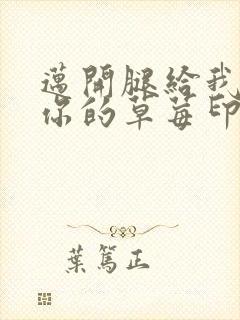 邁開腿給我
你的草莓印
葉篤正